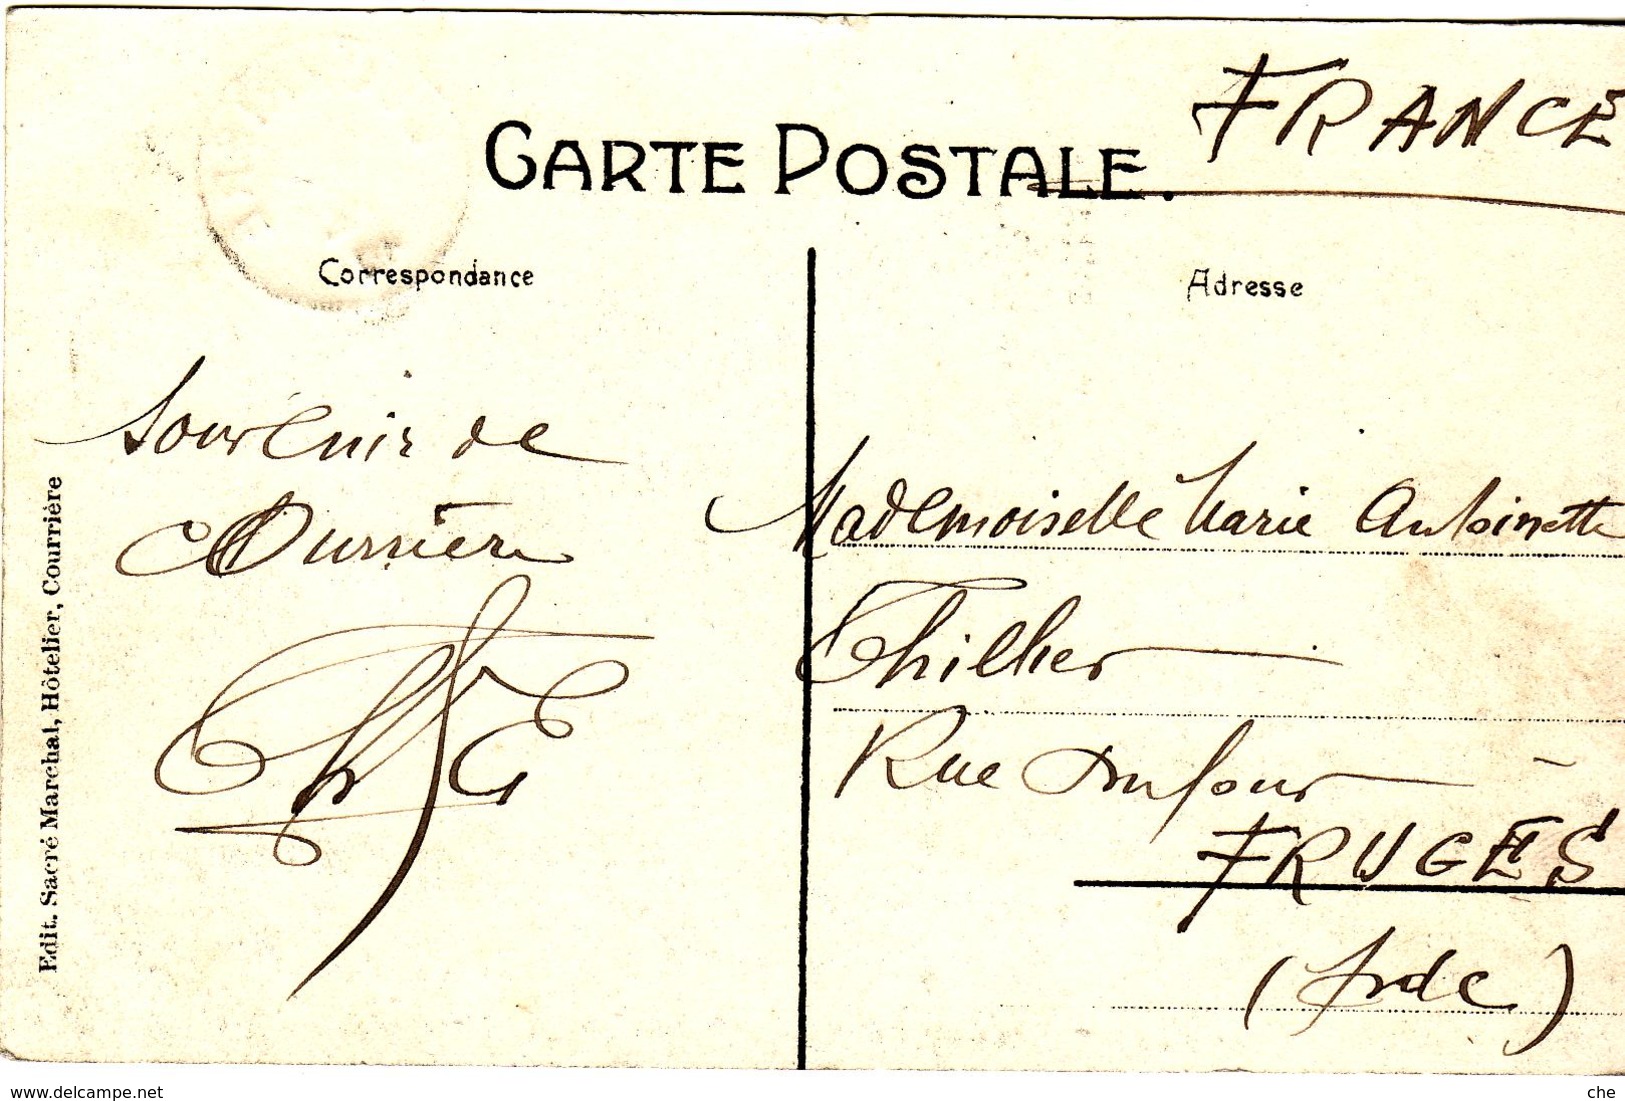 FRANCE
CARTE POSTALE.
Correspondance
Adresse
Souvenir de
Courrière
Mademoiselle Marie Antoinette
Thillier
Rue Dufour
FRUGES
(Pdc)
Edit. Sacré Marchal, Hôtelier, Courrière
www.delcampe.net
che